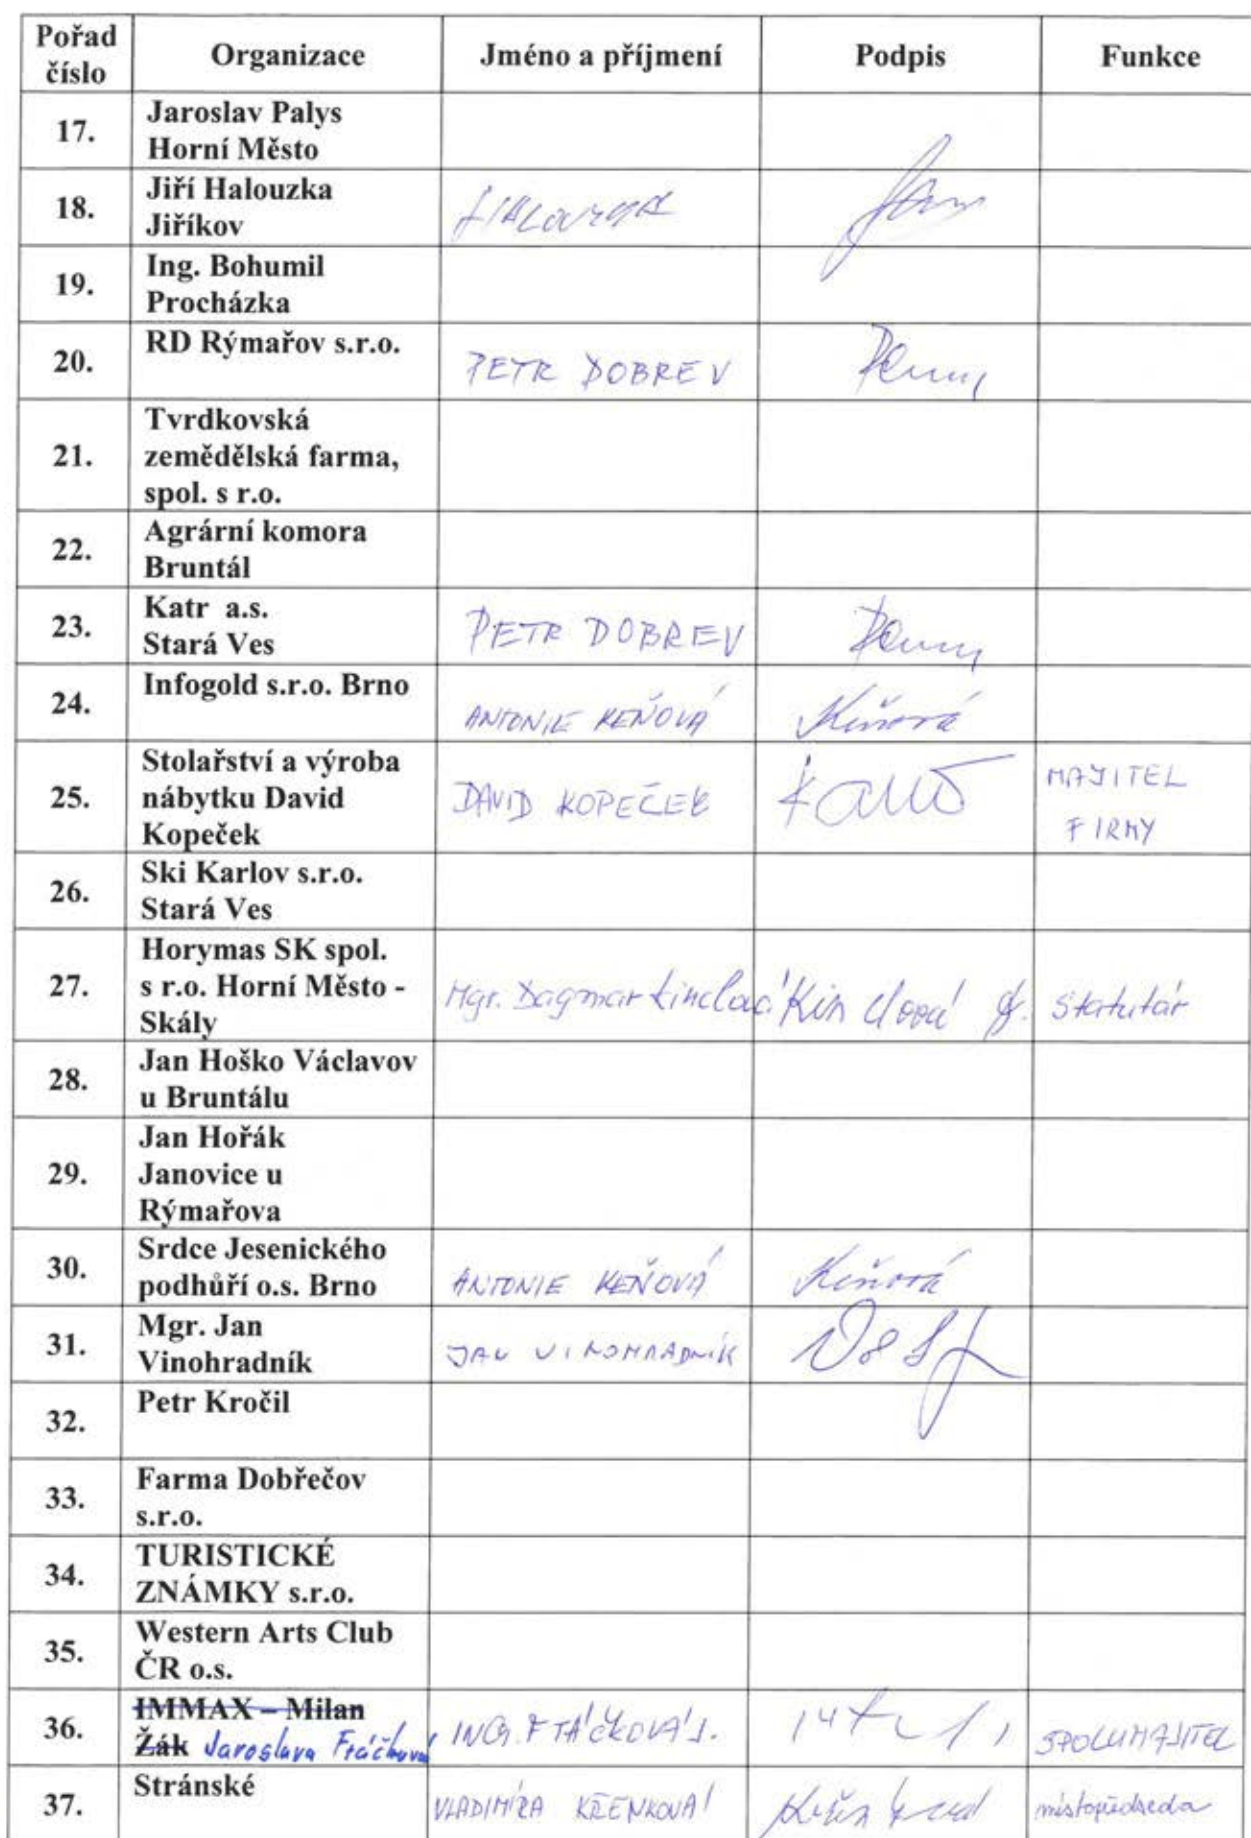 Pořad číslo Organizace Jméno a příjmení Podpis Funkce
17. Jaroslav Palys
Horní Město
18. Jiří Halouzka
Jiříkov
19. Ing. Bohumil
Procházka
20. RD Rýmařov s.r.o. PETR DOBREV
21. Tvrdkovská
zemědělská farma,
spol. s r.o.
22. Agrární komora
Bruntál
23. Katr a.s.
Stará Ves PETR DOBREV
24. Infogold s.r.o. Brno ANTONIE KEŇOVÁ Keňová
25. Stolařství a výroba
nábytku David
Kopeček DAVID KOPEČEK MAJITEL
FIRMY
26. Ski Karlov s.r.o.
Stará Ves
27. Horymas SK spol.
s r.o. Horní Město -
Skály Mgr. Dagmar Kinclová Kinclová D. Statutár
28. Jan Hoško Václavov
u Bruntálu
29. Jan Hořák
Janovice u
Rýmařova
30. Srdce Jesenického
podhůří o.s. Brno ANTONIE KEŇOVÁ Keňová
31. Mgr. Jan
Vinohradník JAN VINOHRADNÍK
32. Petr Kročil
33. Farma Dobřečov
s.r.o.
34. TURISTICKÉ
ZNÁMKY s.r.o.
35. Western Arts Club
ČR o.s.
36. IMMAX – Milan
Žák Jaroslava Ftáčková ING. FTÁČKOVÁ J. SPOLUMAJITEL
37. Stránské VLADIMÍRA KŘENKOVÁ místopředseda